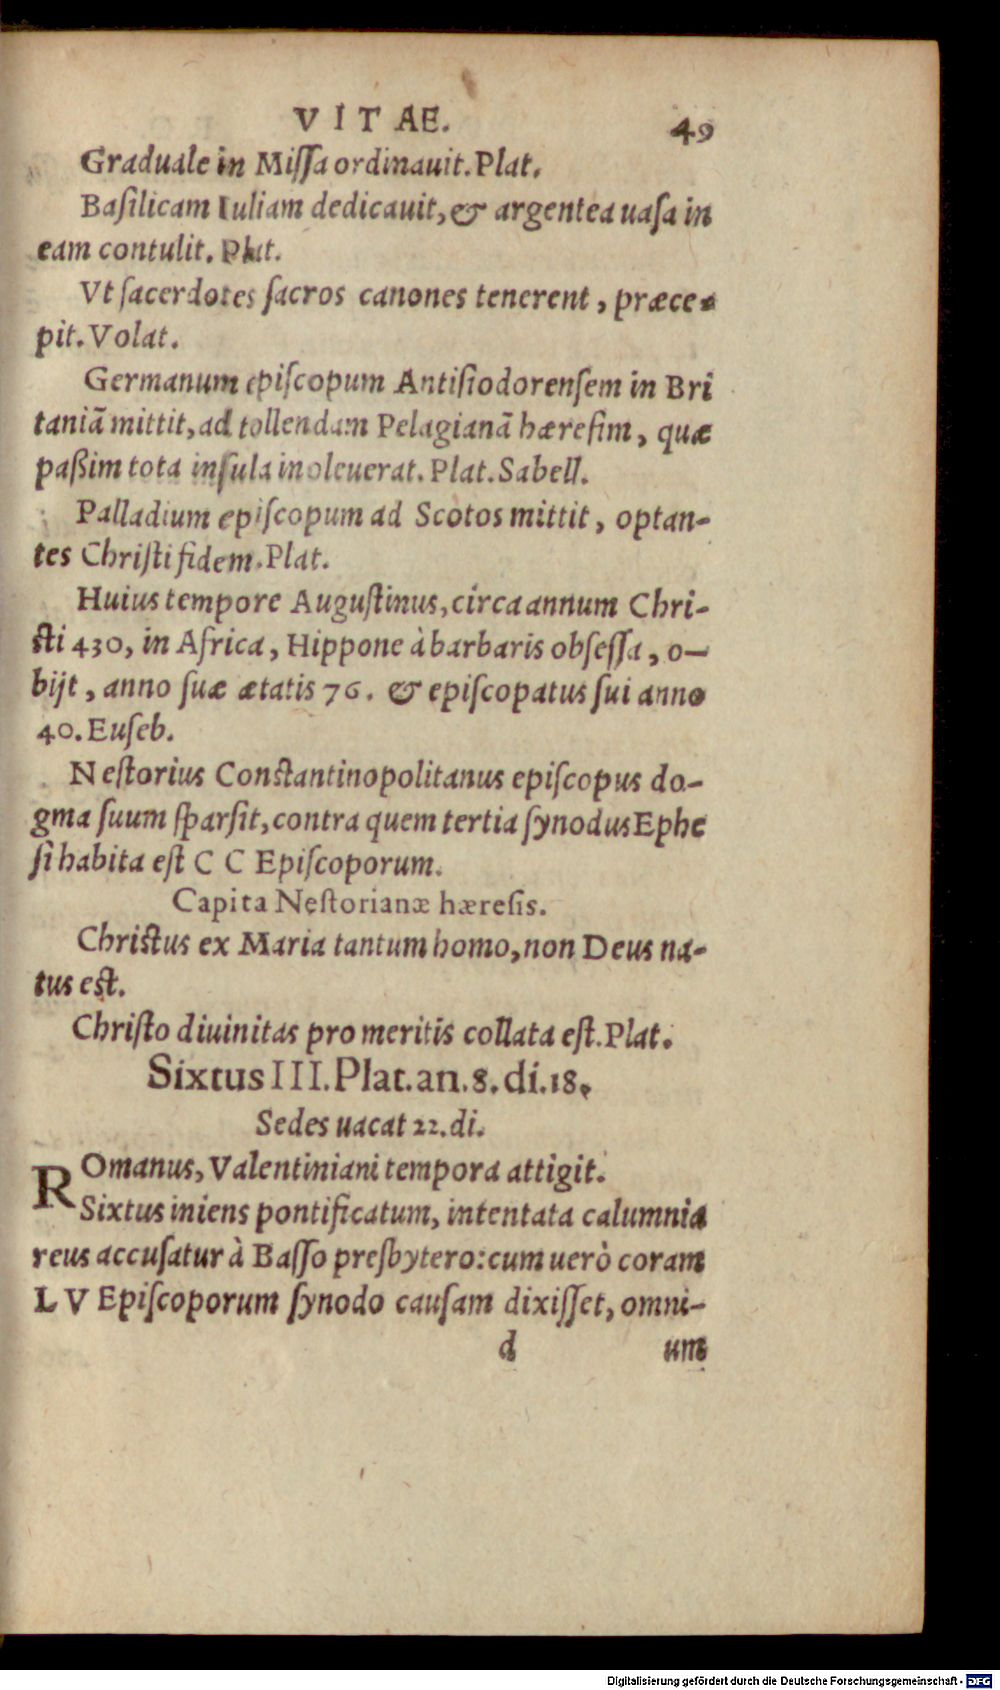 VITAE.
49
Graduale in Miſſa ordinauit. Plat.
Baſilicam Iuliam dedicauit, & argentea uaſa in
eam contulit. Plat.
Vt ſacerdotes ſacros canones tenerent, præce-
pit. Volat.
Germanum epiſcopum Antiſiodorenſem in Bri
taniā mittit, ad tollendam Pelagianā hæreſim, quæ
paßim tota inſula inoleuerat. Plat. Sabell.
Palladium epiſcopum ad Scotos mittit, optan-
tes Chriſti fidem. Plat.
Huius tempore Auguſtinus, circa annum Chri-
ſti 430, in Africa, Hippone à barbaris obſeſſa, o-
bijt, anno ſuæ ætatis 76. & epiſcopatus ſui anno
40. Euſeb.
Neſtorius Conſtantinopolitanus epiſcopus do-
gma ſuum ſparſit, contra quem tertia ſynodus Ephe
ſi habita eſt C C Epiſcoporum.
Capita Neſtorianæ hæreſis.
Chriſtus ex Maria tantum homo, non Deus na-
tus eſt.
Chriſto diuinitas pro meritis collata eſt. Plat.
Sixtus III. Plat. an. 8. di. 18.
Sedes uacat 22. di.
ROmanus, Valentiniani tempora attigit.
Sixtus iniens pontificatum, intentata calumnia
reus accuſatur à Baſſo preſbytero: cum uerò coram
L V Epiſcoporum ſynodo cauſam dixiſſet, omni-
d um
Digitalisierung gefördert durch die Deutsche Forschungsgemeinschaft - DFG